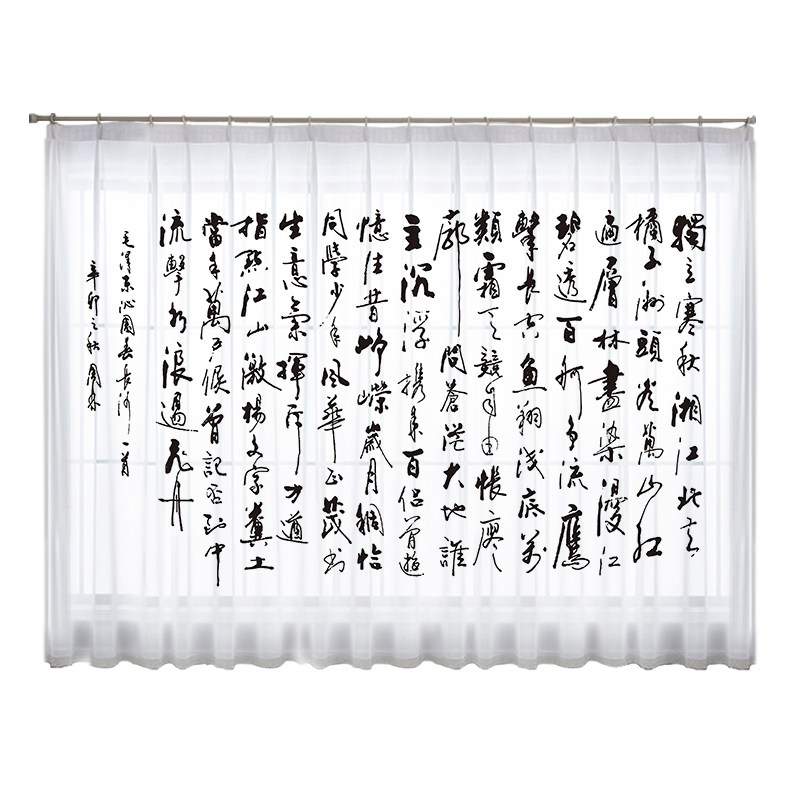 獨立寒秋湘江北去
橘子洲頭看萬山紅
遍層林盡染漫江
碧透百舸爭流鷹
擊長空魚翔淺底万
類霜天競自由悵寥
廓問蒼茫大地誰
主沉浮攜來百侶曾遊
憶往昔崢嶸歲月稠恰
同學少年風華正茂書
生意氣揮斥方遒
指點江山激揚文字糞土
當年萬戶侯曾記否到中
流擊水浪遏飛舟
毛澤東沁園春長沙一首
辛卯之秋